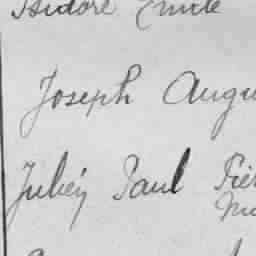 Isidore Emile
Joseph Augu
Julien Paul